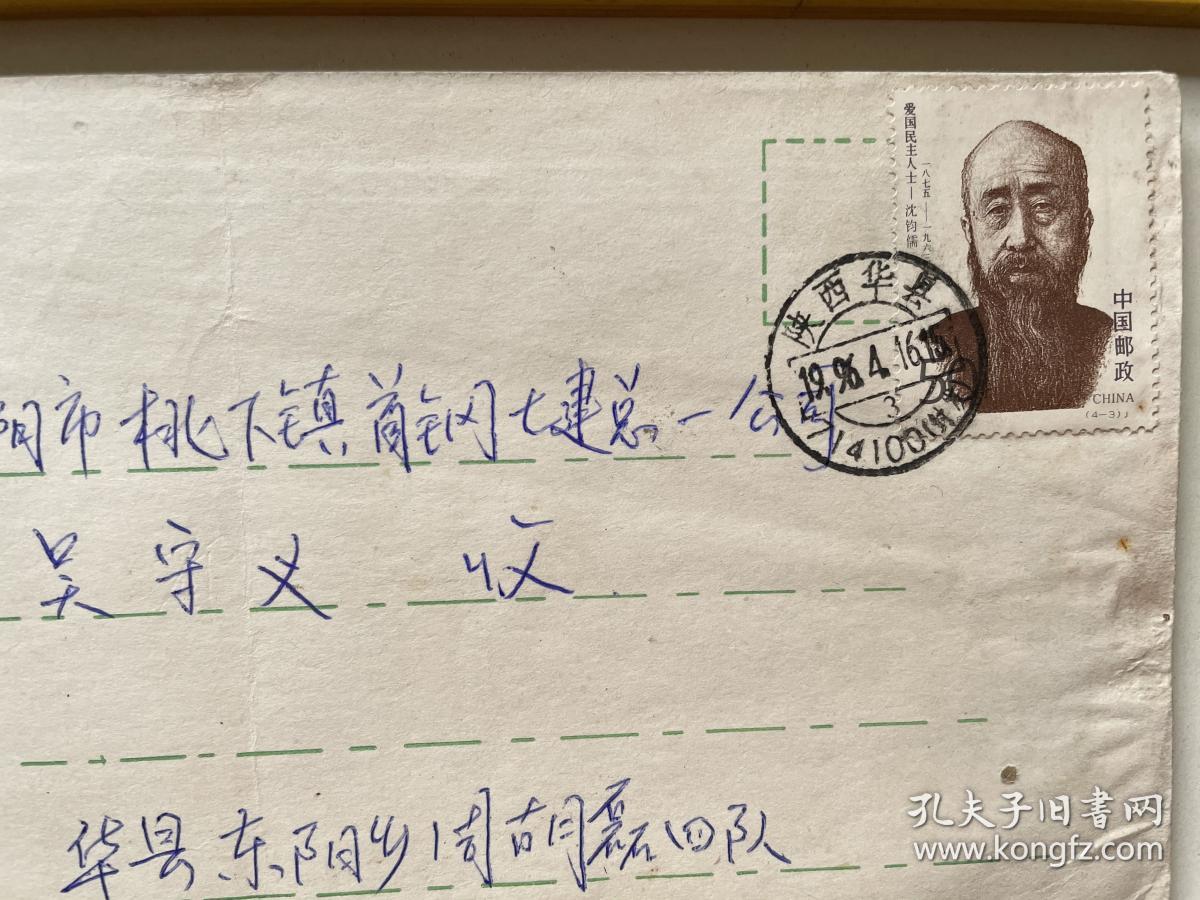 爱国民主人士—沈钧儒
一八七五—一九六
中国邮政
CHINA
(4-3)J
陕西华县
1996.4.16.15
3
714100(支)
阴市桃下镇首钢七建总一公司
吴守义 收
华县东阳乡周胡磊四队
孔夫子旧书网
www.kongfz.com